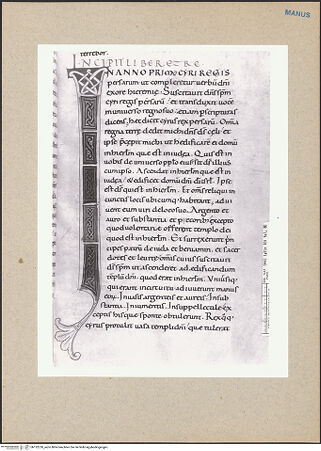 MANUS
terrebor.
INCIPIT LIBER EZRE
IN ANNO PRIMO CYRI REGIS
persarum ut compleretur uerbu dni
exore hieremie. Suscitauit dns spm
cyri regis persaru et transduxit uoce
in uniuerso regno suo etiam p scriptura
dicens, hec dicit cyrus rex persaru. Omnia
regna terre dedit michi dns ds celi et
ipse precepit michi ut hedificare ei domu
in hierlm que est in iudea. Quis est in
uobis de uniuerso pplo eius sit ds illius
cum ipso. Ascendat in hierlm que est in
iudea et edificet domu dni di isrl. Ipse
est ds qui est in hierlm. Et oms reliqui in
cunctis locis ubicumq; habitant, adiu
uent eum uiri de loco suo. Argento et
auro et substantia et pecoribus excepto
quod uoluntarie offerent templo dei
quod est in hierlm. Et surrexerunt prin
cipes patru de iuda et beniamin et sacer
dotes et leuite omis cuius suscitauit
ds spm ut ascenderet ad edificandum
templu dni quod erat in hierlm. Uniuersiq;
qui erant in circuitu adiuuerunt manus
eoru. In uasis argenteis et aureis. In sub
stantia. In iumentis. In suppellectale ex
ceptis his que sponte obtulerunt. Rex q;
cyrus protulit uasa templi dni que tulerat